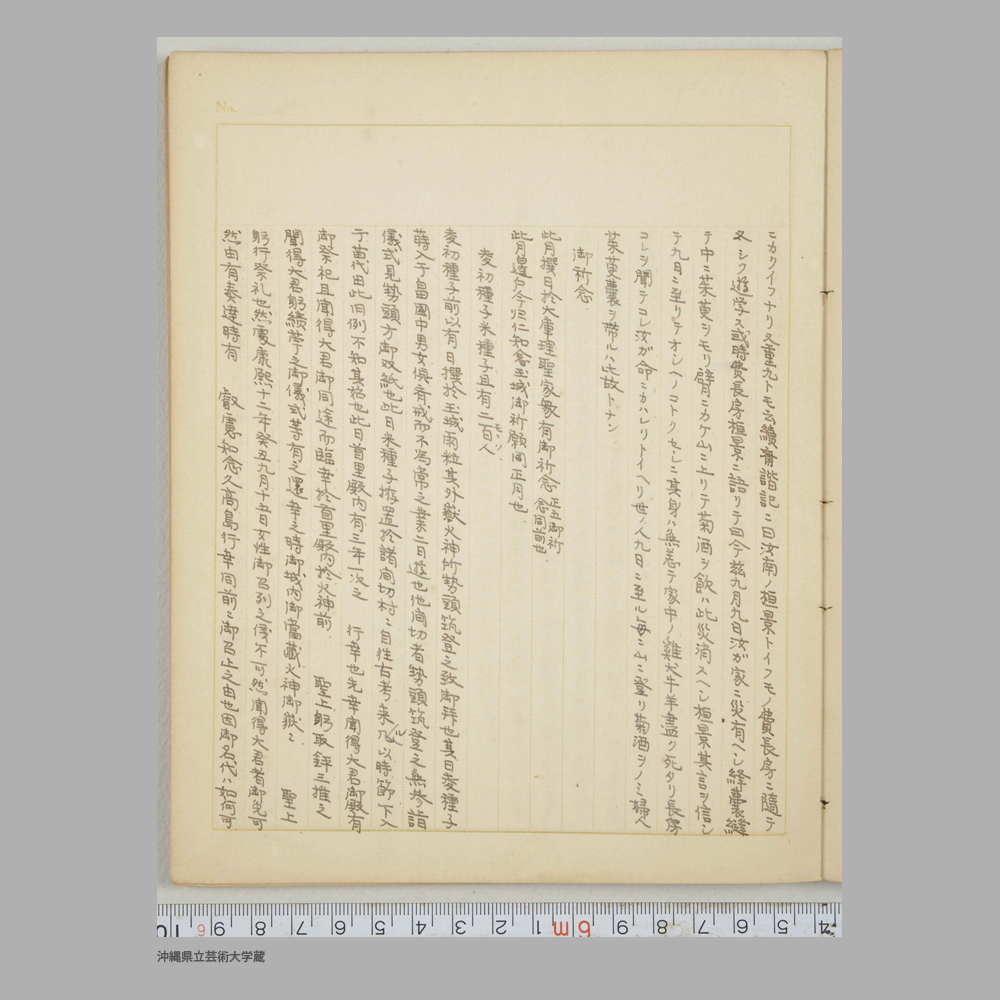 ニカクイフナリ又重九トモ云續齊諧記ニ曰汝南ノ桓景トイフモノ費長房ニ隨テ
久シク遊学ス或時費長房桓景ニ語リテ曰今茲九月九日汝ガ家ニ災有ヘシ絳囊縫
テ中ニ茱萸ヲモリ臂ニカケ山ニ上リテ菊酒ヲ飲ハ此災消スヘシ桓景其言ヲ信シ
テ九日ニ至リテオシヘノコトクセシニ其身ハ無恙テ家中ノ雞犬牛羊盡ク死タリ長房
コレヲ聞テコレ汝ガ命ニカハレリトイヘリ世ノ人九日ニ至ル毎ニ山ニ登リ菊酒ヲノミ婦人
茱萸囊ヲ帶ルハ此故トナン
御祈念
此月撰日於大庫理聖家衆有御祈念 正五御祈念同前也
此月邊戸今帰仁知念玉城御祈願同正月也
麦初種子米種子且有二百人
モノソ
麦初種子前以有日撰於玉城雨粒其外嶽火神所勢頭筑登之致御拜也其日麦種子
蒔入于畠國中男女倶斉戒而不為常之業二日遊也他間切者勢頭筑登之無参詣
儀式見勢頭方御双紙也此日米種子 置於諸間切村ニ自往古考来ルル以時節下入
于苗代田此旧例不知其始也此日首里殿内有三年一次之 行幸也先幸聞得大君御殿有
御祭祀且聞得大君御同途而臨幸於首里殿内於火神前 聖上躬取鉾三推之
聞得大君躬績苧之御儀式等有之還幸之時御城内御當藏火神御嶽ニ 聖上
躬行祭礼也然處康熙十二年癸丑九月十五日女性御召列之儀不可然聞得大君者御免可
然由有奏達時有 叡慮知念久高島行幸同前ニ御召止之由也因御名代ハ如何可
No.
10 9 8 7 6 5 4 3 2 1 6m 9 8 7 6 5 4
沖縄県立芸術大学蔵